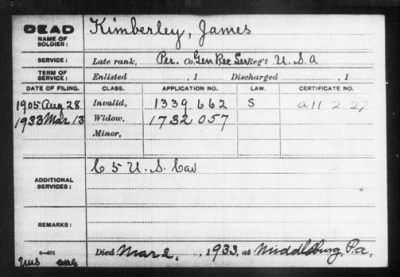 DEAD Kimberley, James
NAME OF SOLDIER:
SERVICE: Late rank, Per. Co. Gen Rec Ser Reg't U.S.A
TERM OF SERVICE: Enlisted , 1 Discharged , 1
DATE OF FILING. CLASS. APPLICATION NO. LAW. CERTIFICATE NO.
1905 Aug 28 Invalid, 1339.662 S
1933 Mar 13 Widow, 1732 057
Minor,
ADDITIONAL SERVICES: C 5 U.S. Cav
REMARKS:
Died Mar 2, 1933, at Middleburg, Pa.